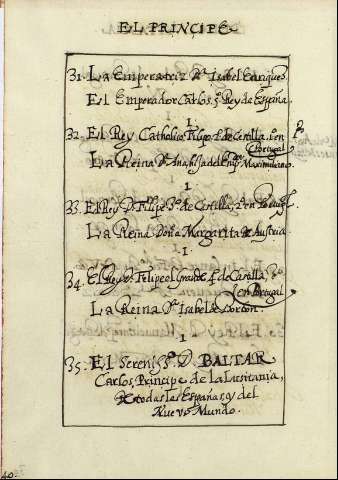 EL PRINCIPE
31. La Emperatriz Dª Isabel Enriques
El Emperador Carlos. 5º Rey de España.
I
32. El Rey Catholico Filipo. 2º de Castilla. 1º en
Portugal
La Reina Dª Ana hija del Empor Maximiliano
I
33. El Rey D. Felipe 3º de Castilla, 2º en Portugl
La Reina Doña Margarita de Austria.
I
34. El Rey D. Felipe el Grande 4º de Castilla 3º
en Portugal
La Reina Dª Isabel de Borbon.
I
35. El Serenissº D. BALTAR
Carlos, Principe de la Lusitania,
de todas las Españas, y del
Nuevo Mundo.
40